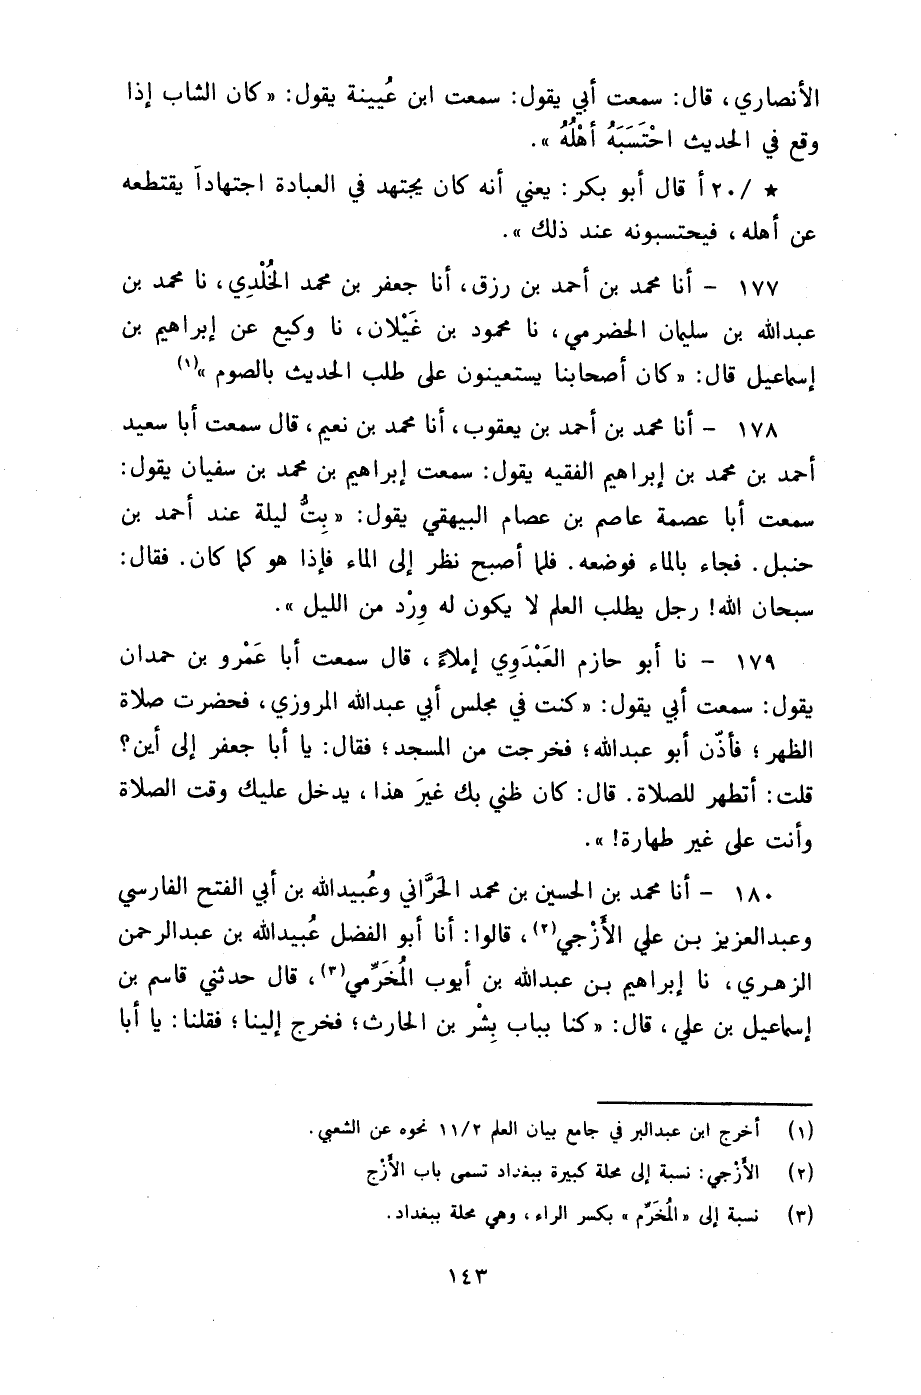 الأنصاري، قال: سمعت أبي يقول: سمعت ابن عُيينة يقول: «كان الشاب إذا
وقع في الحديث احْتَسَبَهُ أهْلُهُ».
★ /٢٠أ قال أبو بكر: يعني أنه كان يجتهد في العبادة اجتهاداً يقتطعه
عن أهله، فيحتسبونه عند ذلك».
١٧٧ - أنا محمد بن أحمد بن رزق، أنا جعفر بن محمد الخُلْدِي، نا محمد بن
عبدالله بن سليمان الحضرمي، نا محمود بن غَيْلان، نا وكيع عن إبراهيم بن
إسماعيل قال: «كان أصحابنا يستعينون على طلب الحديث بالصوم»(١)
١٧٨ - أنا محمد بن أحمد بن يعقوب، أنا محمد بن نعيم، قال سمعت أبا سعيد
أحمد بن محمد بن إبراهيم الفقيه يقول: سمعت إبراهيم بن محمد بن سفيان يقول:
سمعت أبا عصمة عاصم بن عصام البيهقي يقول: «بِتُّ ليلة عند أحمد بن
حنبل. فجاء بالماء فوضعه. فلما أصبح نظر إلى الماء فإذا هو كما كان. فقال:
سبحان الله! رجل يطلب العلم لا يكون له وِرْد من الليل».
١٧٩ - نا أبو حازم العَبْدَوِي إملاءً، قال سمعت أبا عَمْرو بن حمدان
يقول: سمعت أبي يقول: «كنت في مجلس أبي عبدالله المروزي، فحضرت صلاة
الظهر؛ فأذّن أبو عبدالله؛ فخرجت من المسجد؛ فقال: يا أبا جعفر إلى أين؟
قلت: أتطهر للصلاة. قال: كان ظني بك غيرَ هذا، يدخل عليك وقت الصلاة
وأنت على غير طهارة!».
١٨٠ - أنا محمد بن الحسين بن محمد الحَرَّاني وعُبيدالله بن أبي الفتح الفارسي
وعبدالعزيز بن علي الأَزْجي(٢)، قالوا: أنا أبو الفضل عُبيدالله بن عبدالرحمن
الزهري، نا إبراهيم بن عبدالله بن أيوب المُخَرِّمي(٣)، قال حدثني قاسم بن
إسماعيل بن علي، قال: «كنا بباب بِشْر بن الحارث؛ فخرج إلينا؛ فقلنا: يا أبا
(١) أخرج ابن عبدالبر في جامع بيان العلم ١١/٢ نحوه عن الشعبي.
(٢) الأَزْجي: نسبة إلى محلة كبيرة ببغداد تسمى باب الأَزْج
(٣) نسبة إلى «المُخَرِّم» بكسر الراء، وهي محلة ببغداد.
١٤٣